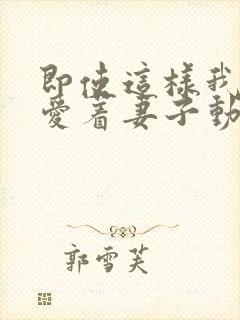 即使這樣我
愛着妻子動
郭雪芙